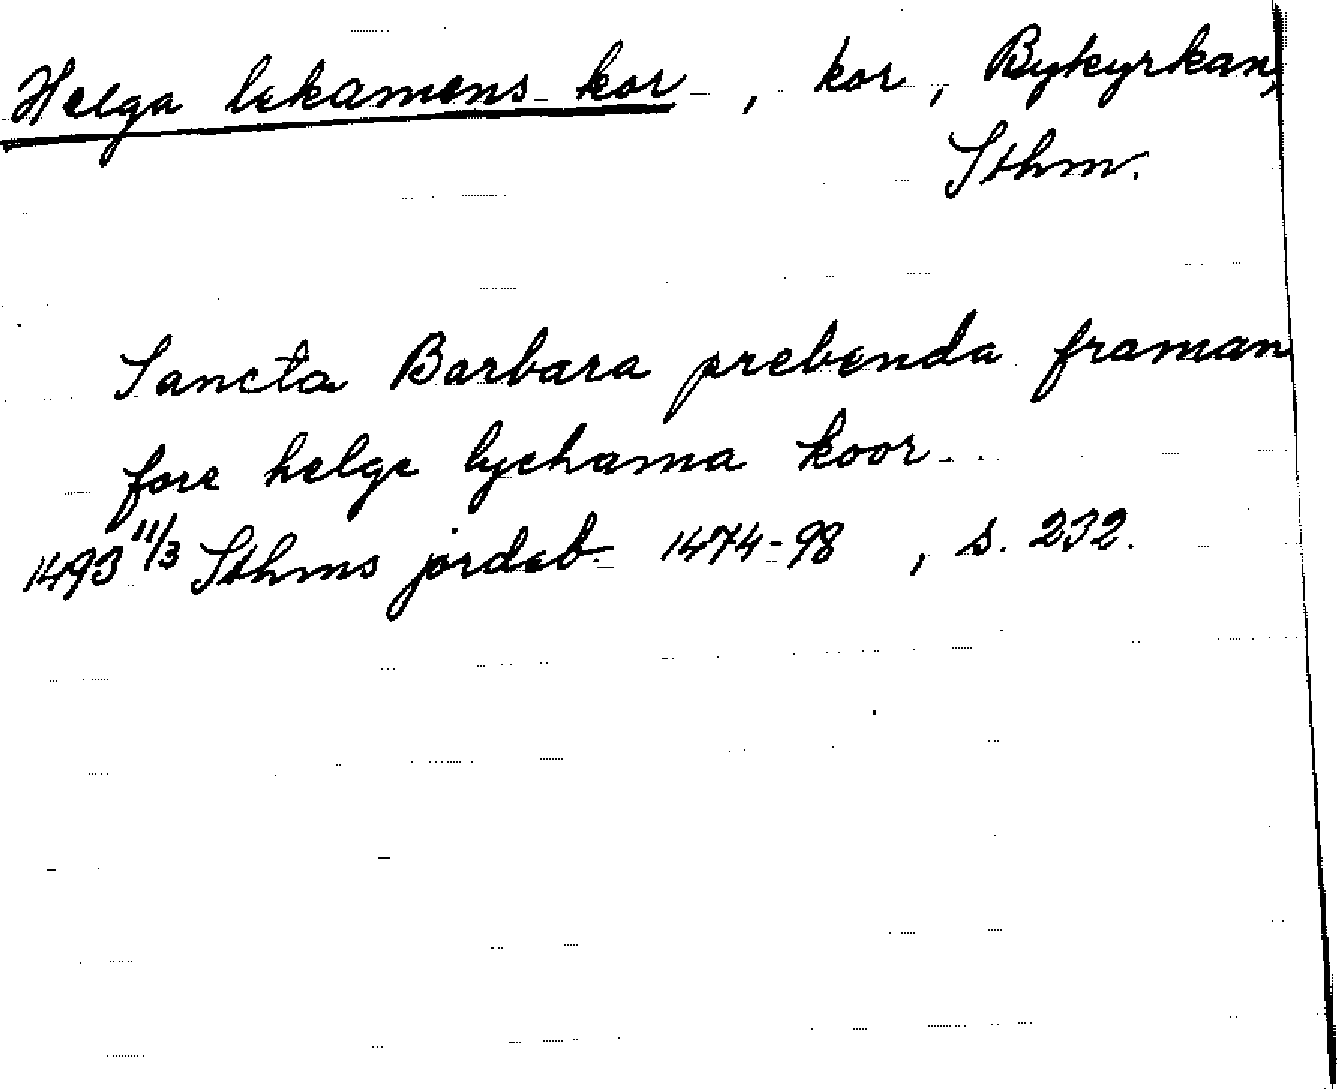 Helga lekamens kor, kor, Bykyrkan,
Sthm.
Sancta Barbara prebenda framan
fore helge lychama koor
1493 11/3 Sthms jordeb. 1474-98, s. 232.